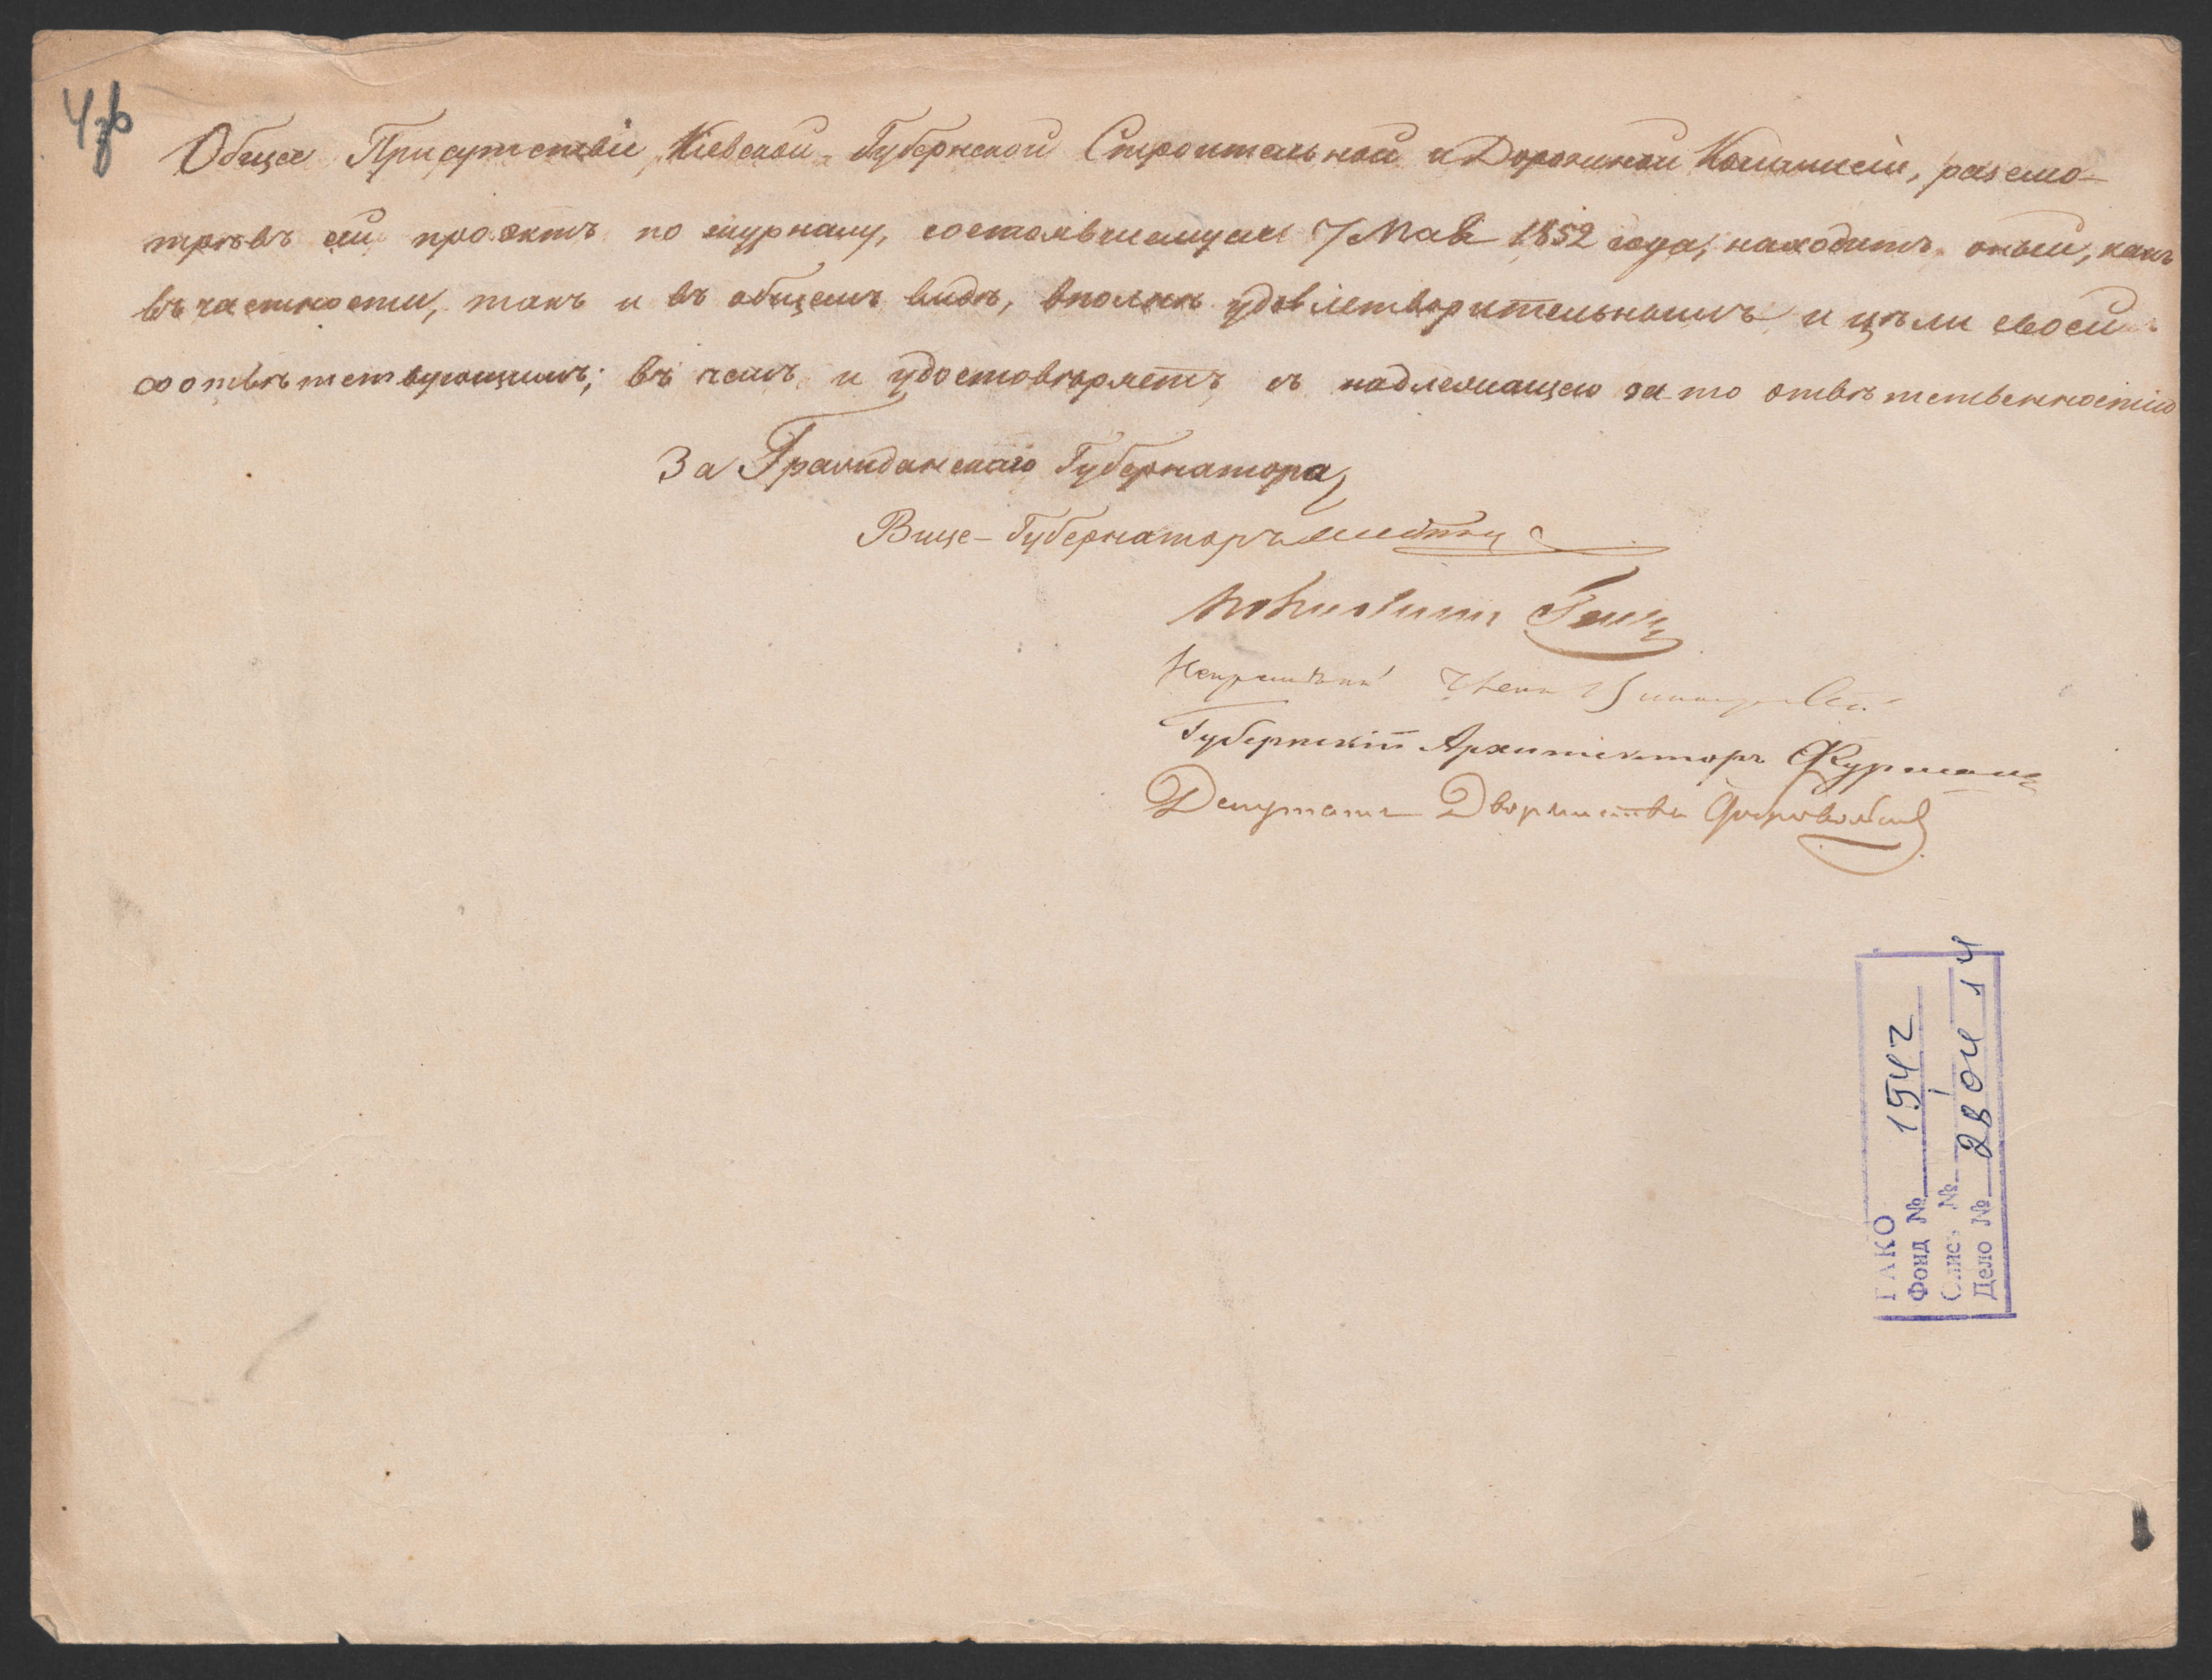 4об
Общее Присутствіе Кіевской Губернской Строительной и Дорожной Коммисіи, разсмо-
трѣвъ сей проэктъ по журналу, состоявшемуся 7 Мая 1852 года, находитъ оный, какъ
въ частности, такъ и въ общемъ видѣ, вполнѣ удовлетворительнымъ и цѣли своей
соотвѣтствующимъ; въ чемъ и удостовѣряетъ съ надлежащею за то отвѣтственностію
За Гражданскаго Губернатора,
Вице-Губернаторъ
Губернскій Архитекторъ
Депутатъ Дворянства
ГАКО
Фонд № 1542
Опись № 1
Дело № 280 ч л 4